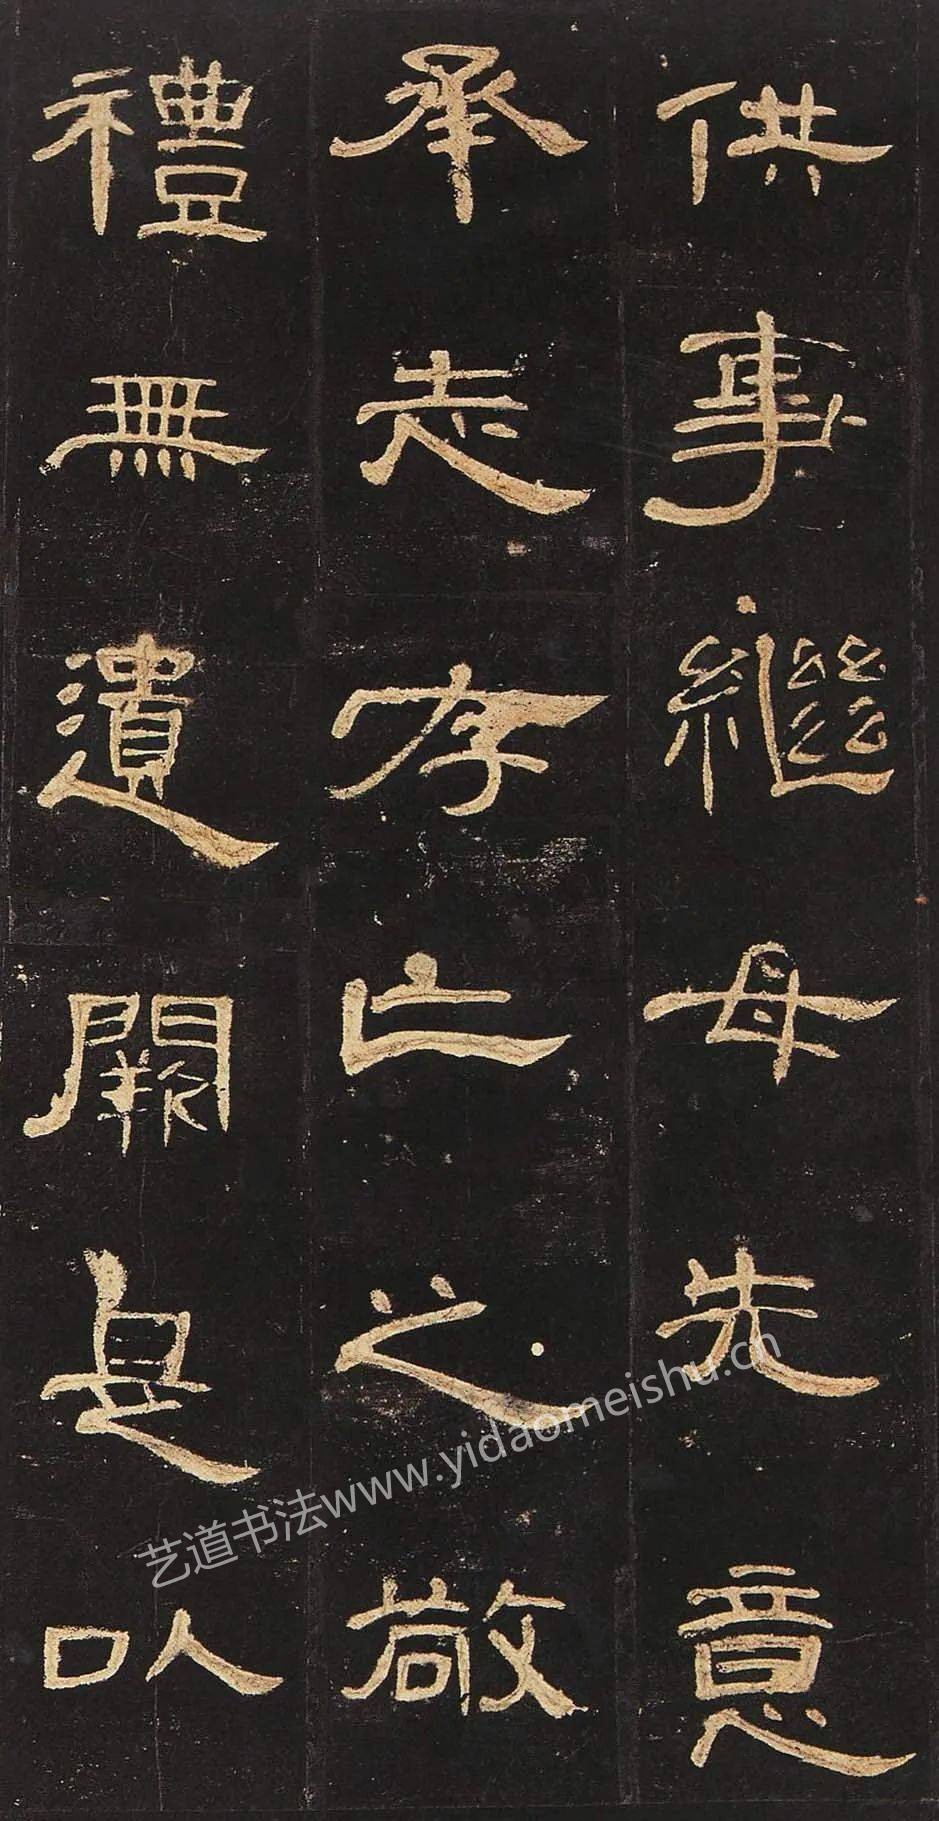 供事繼母先意
承志存亡之敬
禮無遺闕是以
艺道书法www.yidaomeishu.cn